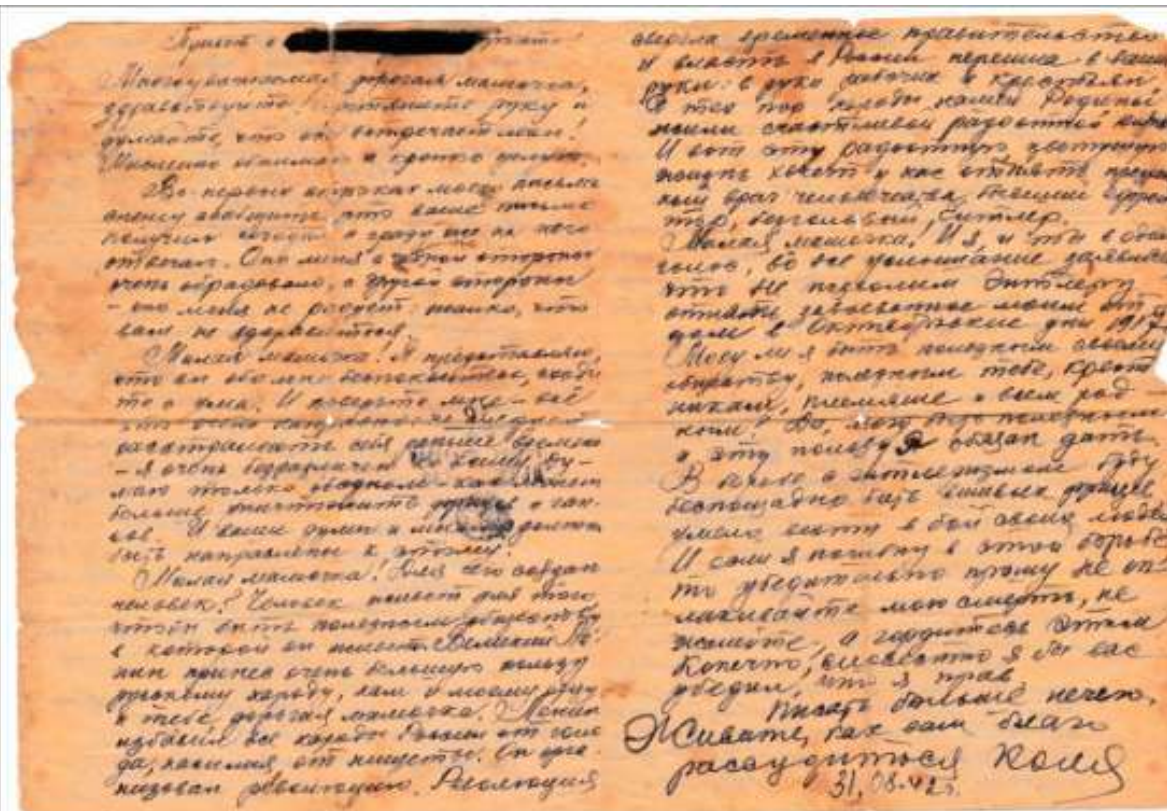 Привет с
Многоуважаемая дорогая мамочка,
здравствуйте! протяните руку и
думайте, что он встречает мои!
Мысленно обнимаю и крепко целую.
Во первых строках моего письма
спешу сообщить, что ваше письмо
получил сегодня и сразу же на него
отвечаю. Оно меня с одной стороны
очень обрадовало, с другой стороны
- оно меня не радует: тем, что
вам не здоровится.
Милая мамочка! Я представляю,
что вы обо мне беспокоитесь, сходи-
те с ума. И поверьте мне - всё
это очень напрасно.
расстраивать себя раньше времени
- я очень безразличен ко всему, ду-
маю только об одном: как можем
больше уничтожить фрицев и ган-
сов. И ваши думы и мысли должны
быть направлены к этому.
Милая мамочка! Для чего создан
человек? Человек живет для того,
чтобы быть полезным обществу,
в котором он живет. Великий Ле-
нин принес очень большую пользу
русскому народу, вам и моему отцу
и тебе, дорогая мамочка. Ленин
избавил все народы России от голо-
да, насилия, от нищеты. Он орга-
низовал революцию. Революция
свергла временное правительство
и власть в России перешла в ваши
руки: в руки рабочих и крестьян.
С тех пор народы нашей Родины
жили счастливой радостной
И вот эту радостную цветущую
жизнь хочет у нас отнять
враг человечества, бывший
безголовый, Гитлер.
Милая мамочка! И я, и ты в один
голос, во все услышание заявляем
что не позволим Гитлеру
отнять завоеванное моим от-
цом в Октябрьские дни 1917
Могу ли я быть полезным своему
обществу, полезным тебе,
племяше и всем род-
ным? Да, могу быть полезным
и эту пользу я обязан дать.
В борьбе с гитлеризмом буду
беспощадно бить вшивых фрицев,
умело вести в бой своих людей
И если я погибну в этой борьбе
то убедительно прошу не оп-
лакивайте мою смерть, не
жалейте, а гордитесь этим
Конечно, словестно я бы вас
убедил, что я прав.
Писать больше нечего.
Живите, как вам благо
рассудиться Коля
31.08.42г.